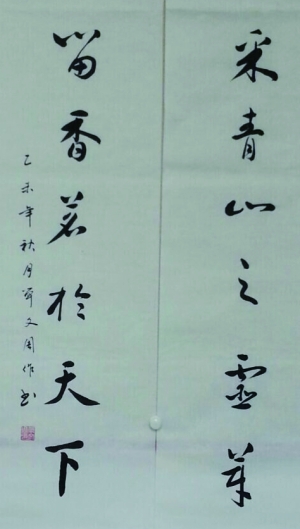 采青山之靈芽
留香茗於天下
乙未年秋月文周作书